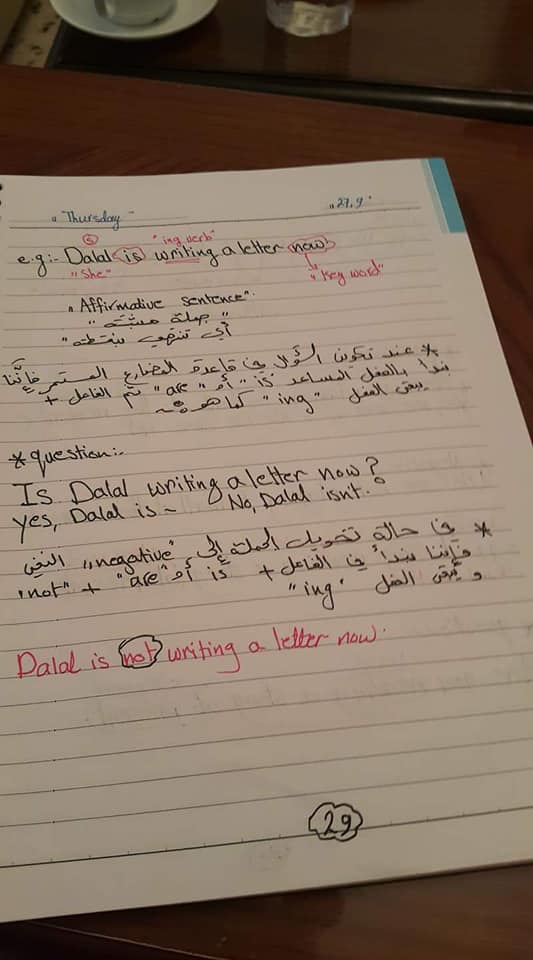 "Thursday" "27.9"
"ing verb"
e.g:- Dalal is writing a letter now
"She" "Key word"
"Affirmative sentence":
"جملة مثبتة"
أي تنتهي بنقطة"
* عند تكوين السؤال في قاعدة المضارع المستمر فإنّنا
نبدأ بالفعل المساعد "is" أو "are" ثم الفاعل +
يبقى الفعل "ing" كما هو
* question:-
Is Dalal writing a letter now?
yes, Dalal is - No, Dalal isnt.
* في حالة تحويل الجملة إلى "negative" النفي
فإننا نبدأ في الفاعل + is أو "are" + "not"
و يبقى الفعل "ing"
Dalal is not writing a letter now.
29